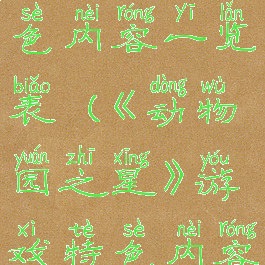 sè nèi róng yī lǎn
色内容一览
biǎo dòng wù
表(《动物
yuán zhī xīng yóu
园之星》游
xì tè sè nèi róng
戏特色内容